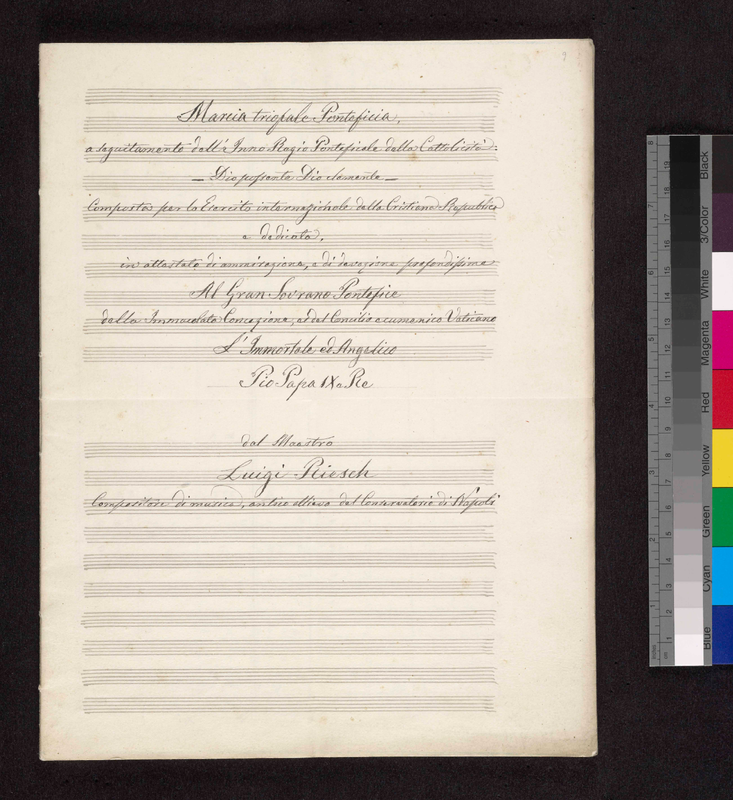 9
Marcia trionfale Ponteficia,
a seguitamento dell' Inno Regio Pontificale della Cattolicità:
— Dio possente Dio clemente —
Composta per la Esercito internazionale della Cristiana Republica
e dedicata,
in attestato di ammirazione, e di devozione profondissima
Al Gran Sovrano Pontefice
della Immacolata Concezione, e del Concilio ecumenico Vaticano
L'Immortale ed Angelico
Pio Papa IX e Re
dal Maestro
Luigi Riesch
Compositore di musica, antico allievo del Conservatorio di Napoli
Black
3/Color
White
Magenta
Red
Yellow
Green
Cyan
Blue